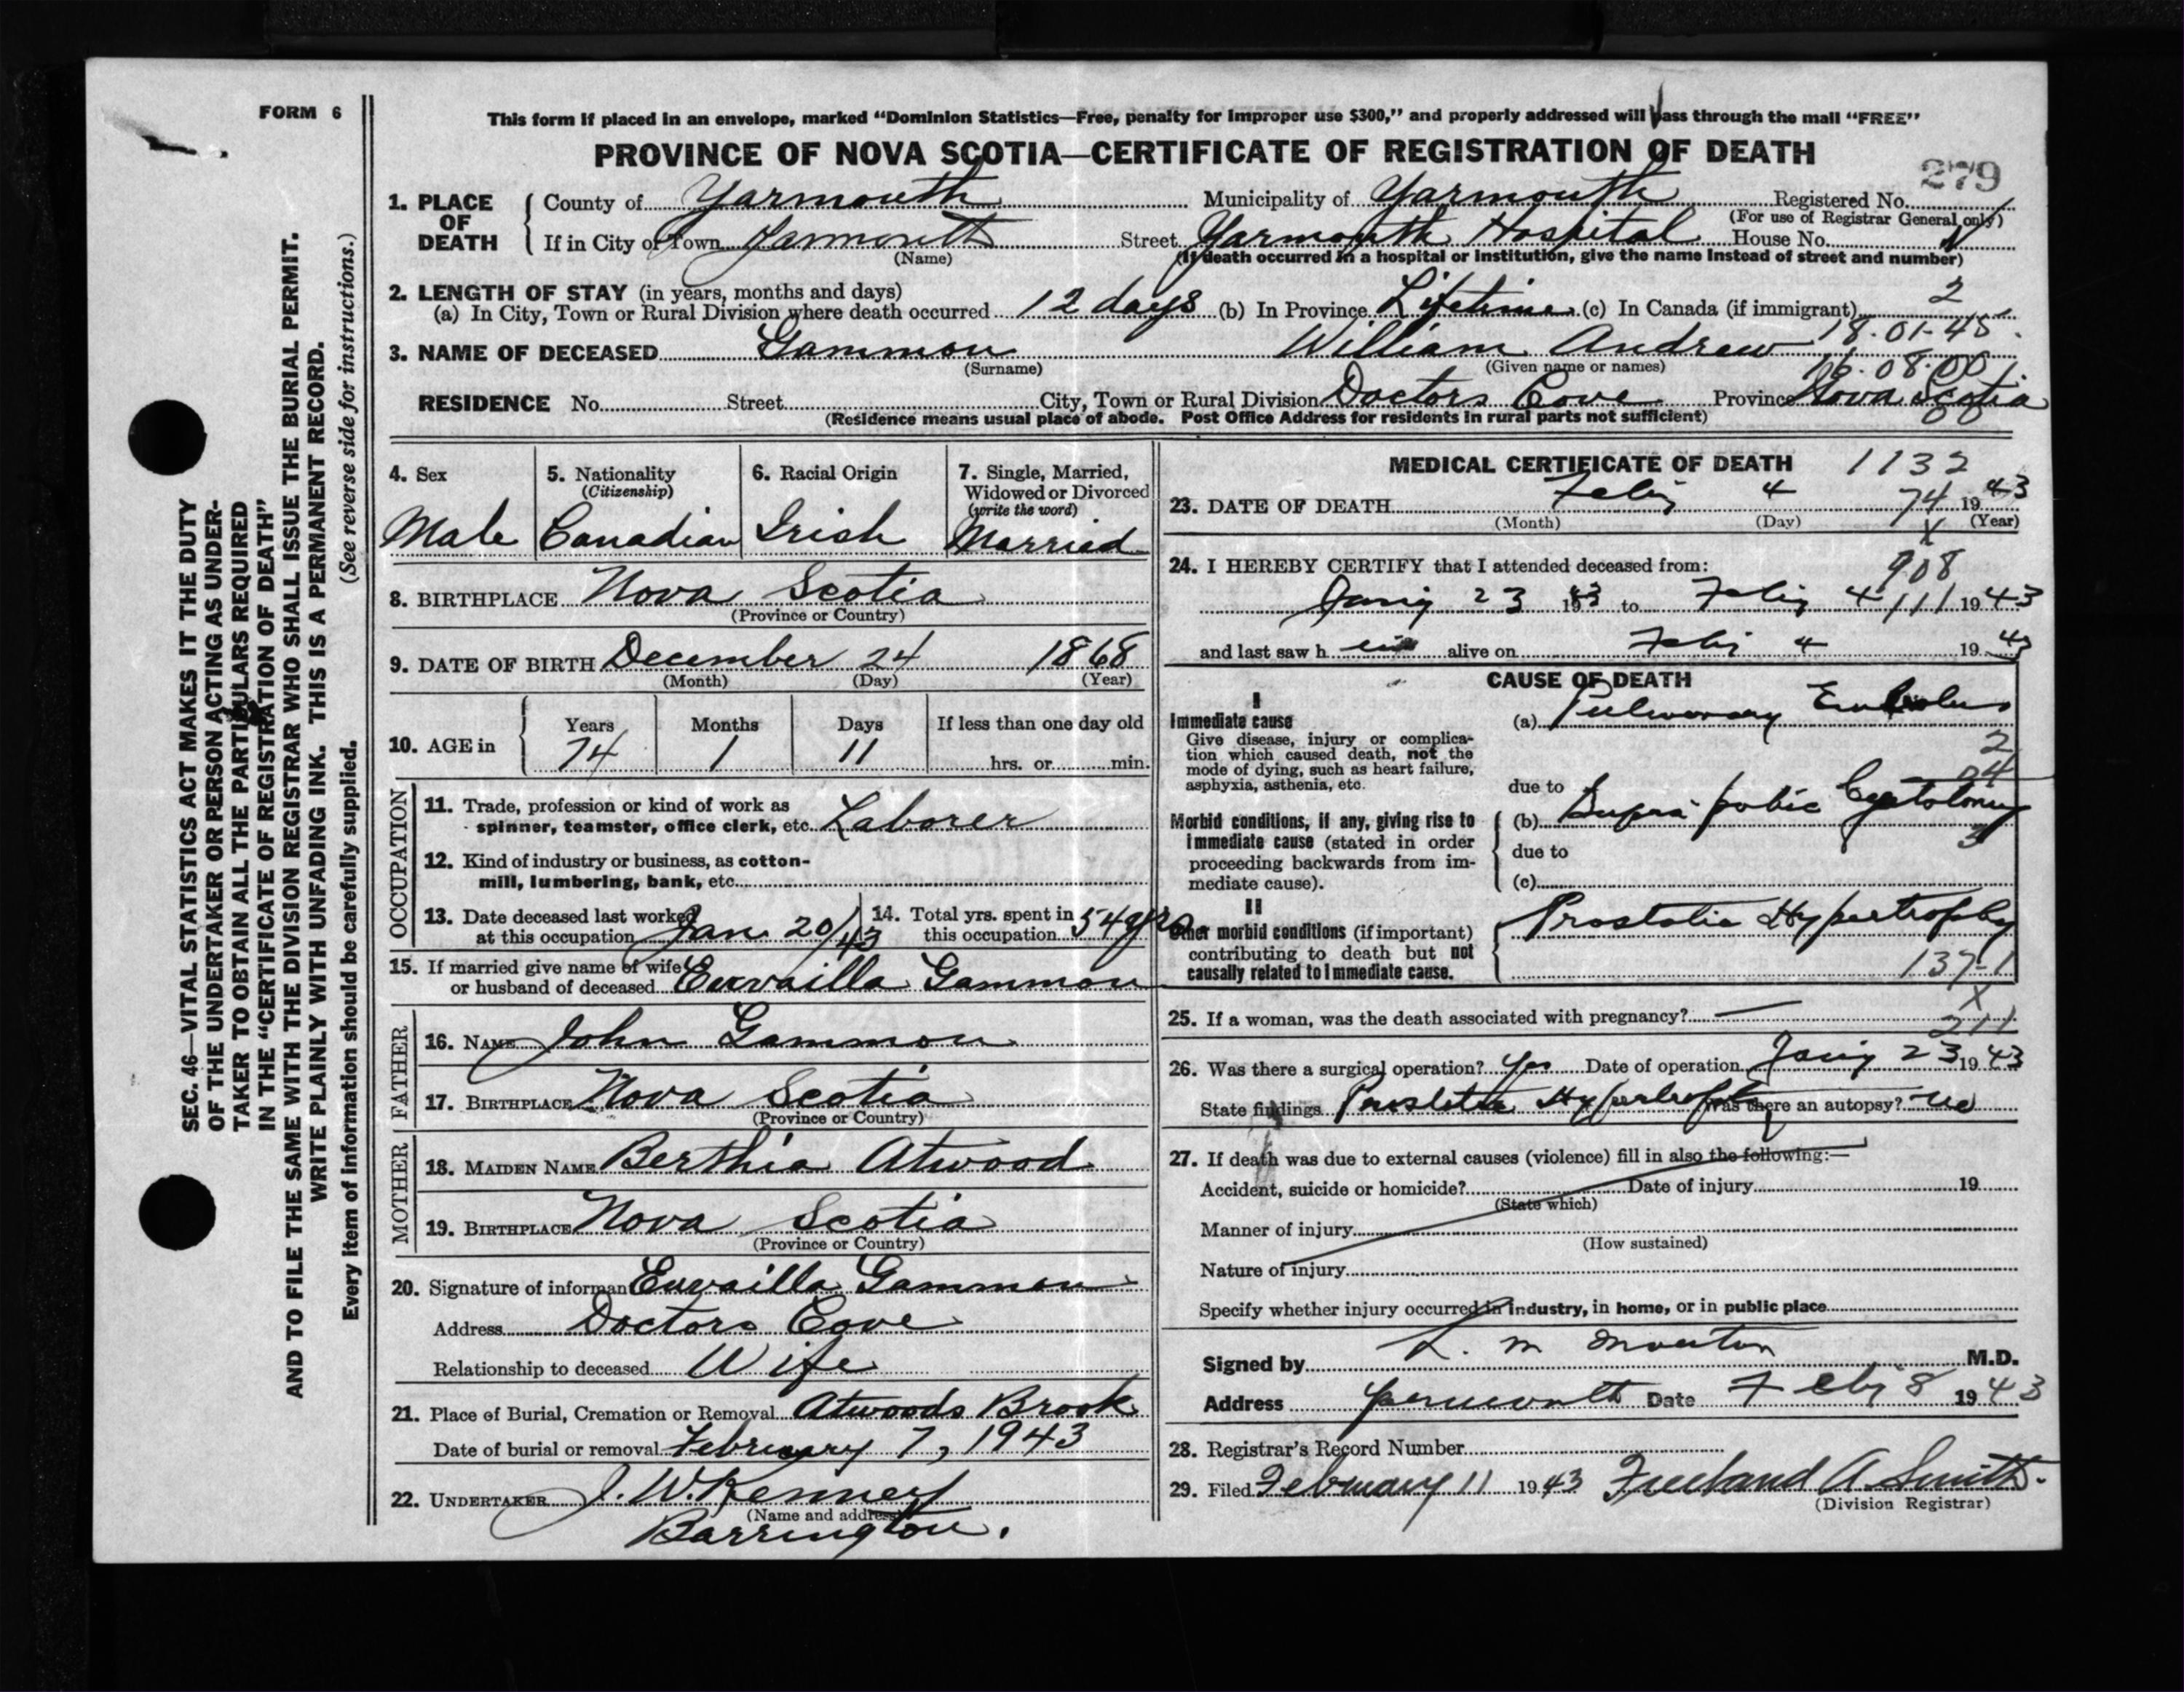 FORM 6
This form if placed in an envelope, marked "Dominion Statistics—Free, penalty for improper use $300," and properly addressed will pass through the mail "FREE"
PROVINCE OF NOVA SCOTIA—CERTIFICATE OF REGISTRATION OF DEATH
279
1. PLACE OF DEATH
County of Yarmouth Municipality of Yarmouth Registered No.
(For use of Registrar General only)
If in City or Town Yarmouth Street Yarmouth Hospital House No.
(Name) (If death occurred in a hospital or institution, give the name instead of street and number)
2. LENGTH OF STAY (in years, months and days)
(a) In City, Town or Rural Division where death occurred 12 days (b) In Province Lifetime (c) In Canada (if immigrant) 2
18.01.45
3. NAME OF DECEASED Gammon William Andrew
(Surname) (Given name or names)
16.08.00
RESIDENCE No. Street City, Town or Rural Division Doctors Cove Province Nova Scotia
(Residence means usual place of abode. Post Office Address for residents in rural parts not sufficient)
4. Sex Male
5. Nationality (Citizenship) Canadian
6. Racial Origin Irish
7. Single, Married, Widowed or Divorced (write the word) Married
8. BIRTHPLACE Nova Scotia
(Province or Country)
9. DATE OF BIRTH December 24 1868
(Month) (Day) (Year)
10. AGE in Years Months Days If less than one day old
74 1 11 hrs. or min.
OCCUPATION
11. Trade, profession or kind of work as
spinner, teamster, office clerk, etc. Laborer
12. Kind of industry or business, as cotton-
mill, lumbering, bank, etc.
13. Date deceased last worked at this occupation Jan 20/43
14. Total yrs. spent in this occupation 54 yrs
15. If married give name of wife
or husband of deceased Euvailla Gammon
FATHER
16. NAME John Gammon
17. BIRTHPLACE Nova Scotia
(Province or Country)
MOTHER
18. MAIDEN NAME Berthia Atwood
19. BIRTHPLACE Nova Scotia
(Province or Country)
20. Signature of informant Euvailla Gammon
Address Doctors Cove
Relationship to deceased Wife
21. Place of Burial, Cremation or Removal Atwoods Brook
Date of burial or removal February 7, 1943
22. UNDERTAKER J. W. Kenney
(Name and address)
Barrington.
MEDICAL CERTIFICATE OF DEATH 1132
23. DATE OF DEATH Feby 4 74 1943
(Month) (Day) X (Year)
24. I HEREBY CERTIFY that I attended deceased from: 908
Jany 23 1943 to Feby 4 111 1943
and last saw h im alive on Feby 4 1943
CAUSE OF DEATH
I
Immediate cause
Give disease, injury or complica-
tion which caused death, not the
mode of dying, such as heart failure,
asphyxia, asthenia, etc.
(a) Pulmonary Embolus
2
24
due to
Morbid conditions, if any, giving rise to
immediate cause (stated in order
proceeding backwards from im-
mediate cause).
(b) Supra pubic Cystotomy
3
due to
(c)
II
Other morbid conditions (if important)
contributing to death but not
causally related to immediate cause.
Prostatic Hypertrophy
137-1
X
25. If a woman, was the death associated with pregnancy? —
211
26. Was there a surgical operation? Yes Date of operation Jany 23 1943
State findings Prostatic Hypertrophy Was there an autopsy? no
27. If death was due to external causes (violence) fill in also the following:—
Accident, suicide or homicide? Date of injury 19
(State which)
Manner of injury
(How sustained)
Nature of injury
Specify whether injury occurred in industry, in home, or in public place
Signed by L. M. Morton M.D.
Address Yarmouth Date Feby 8 1943
28. Registrar's Record Number
29. Filed February 11 1943 Freeland A. Smith.
(Division Registrar)
SEC. 46—VITAL STATISTICS ACT MAKES IT THE DUTY
OF THE UNDERTAKER OR PERSON ACTING AS UNDER-
TAKER TO OBTAIN ALL THE PARTICULARS REQUIRED
IN THE "CERTIFICATE OF REGISTRATION OF DEATH"
AND TO FILE THE SAME WITH THE DIVISION REGISTRAR WHO SHALL ISSUE THE BURIAL PERMIT.
WRITE PLAINLY WITH UNFADING INK. THIS IS A PERMANENT RECORD.
Every item of information should be carefully supplied. (See reverse side for instructions.)